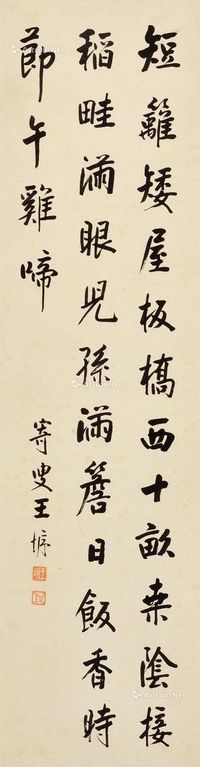 短籬矮屋板橋西十畝桒陰接
稻畦滿眼兒孫滿簷日飯香時
莭午雞啼
寄叟王